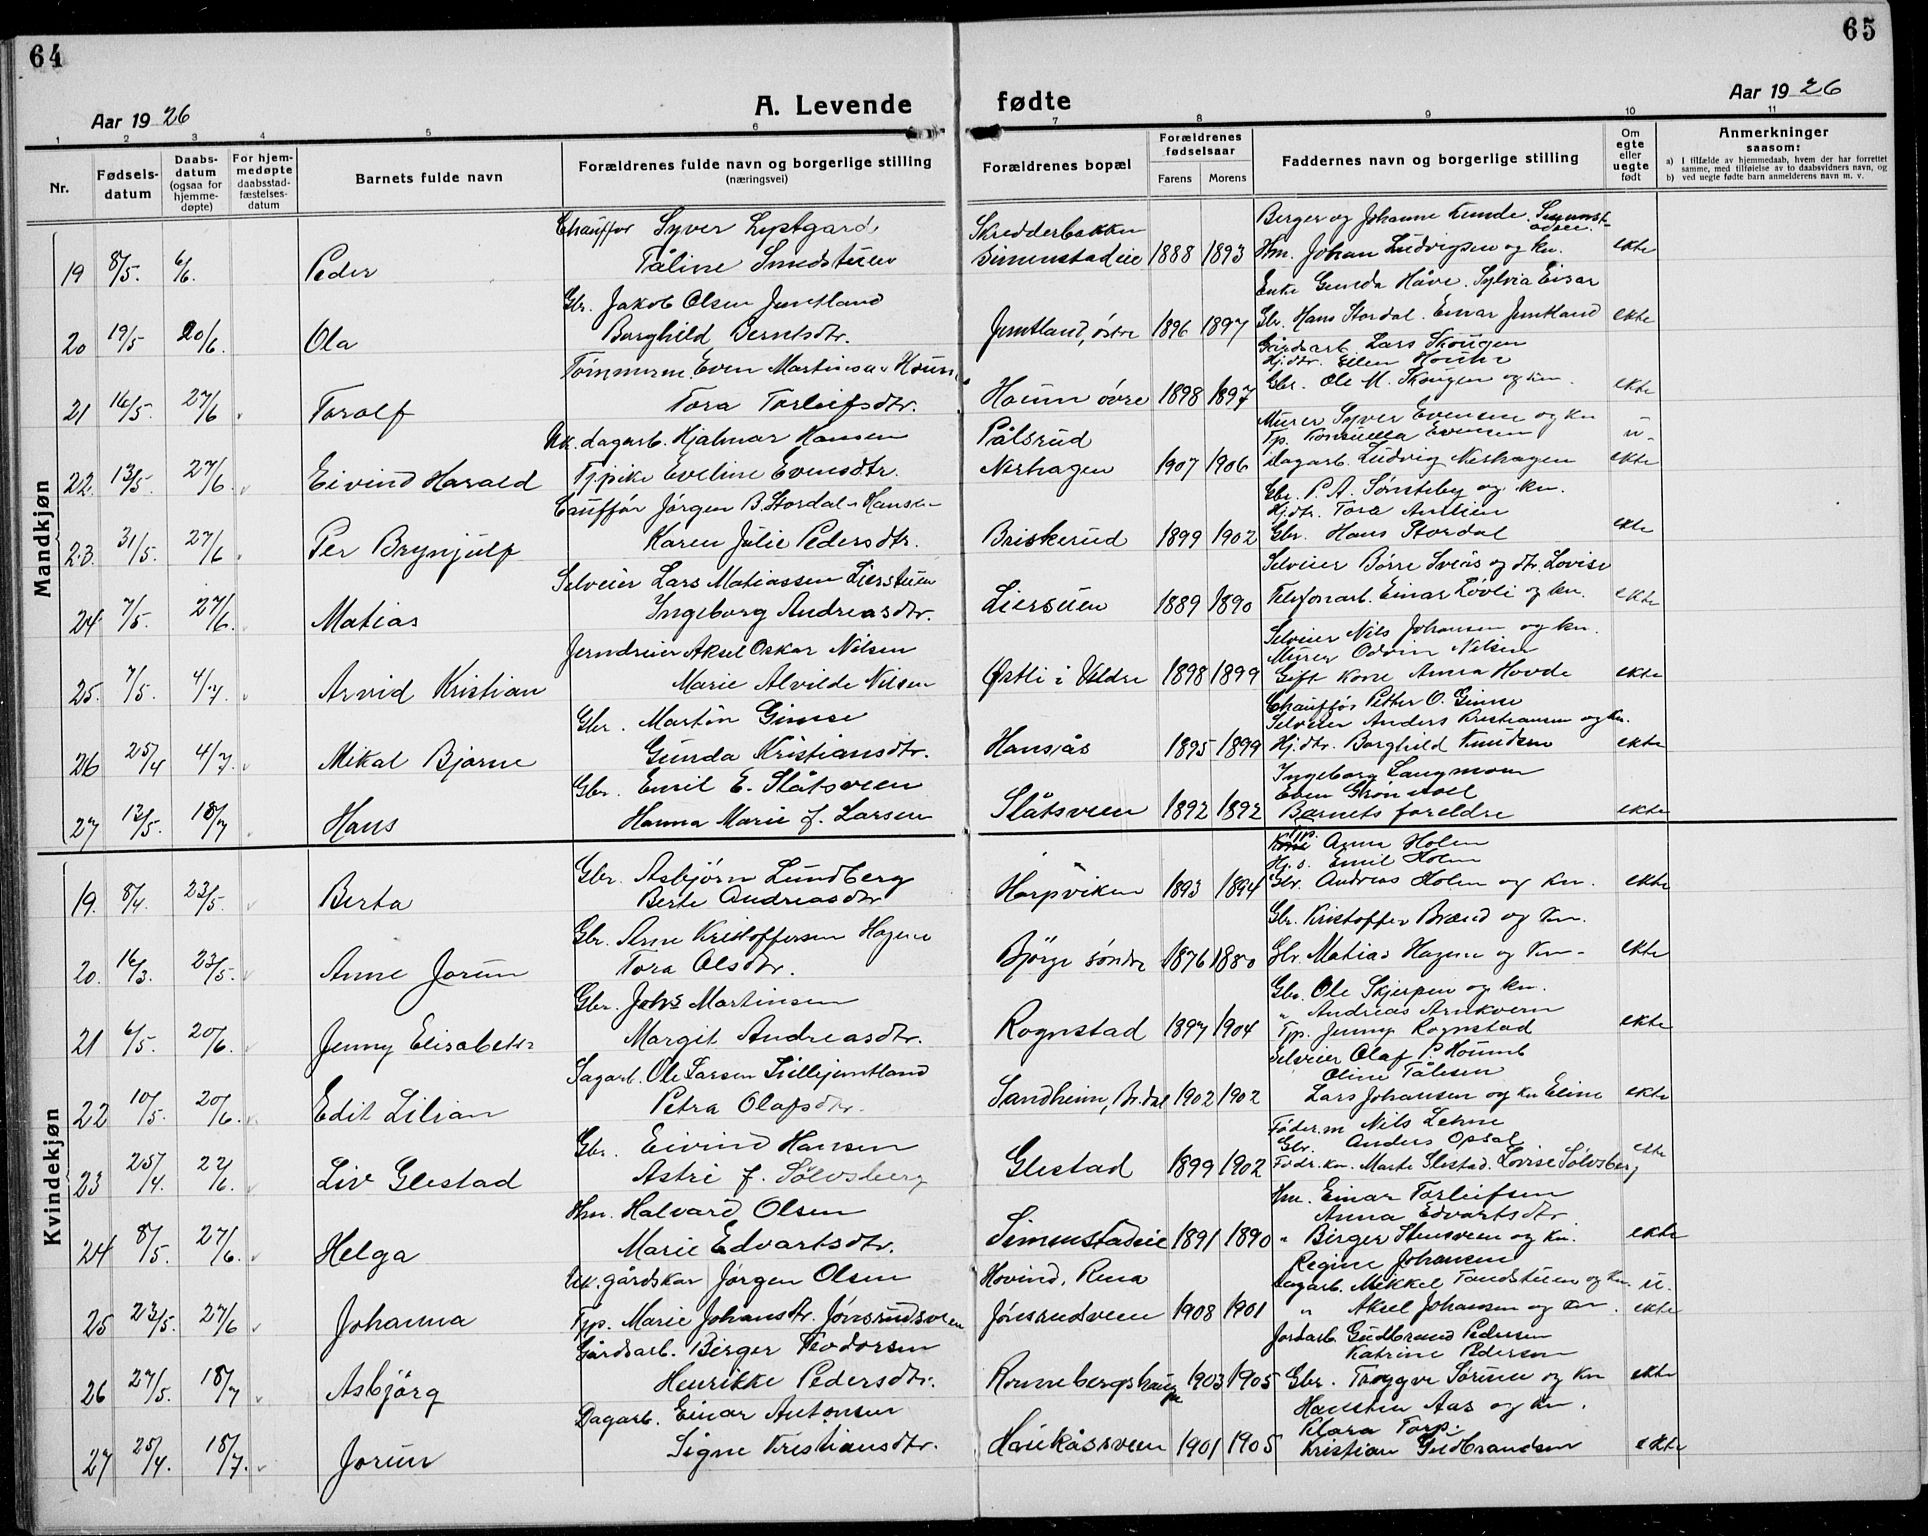 64
65
Aar 1926
A. Levende fødte
Aar 1926
1 2 3 4 5 6 7 8 9 10 11
Nr.
Fødsels-datum
Daabs-datum (ogsaa for hjemme-døpte)
For hjem-medøpte daabsstad-fæstelses-datum
Barnets fulde navn
Forældrenes fulde navn og borgerlige stilling (næringsvei)
Forældrenes bopæl
Forældrenes fødselsaar
Farens Morens
Faddernes navn og borgerlige stilling
Om egte eller uegte født
Anmerkninger saasom:
a) I tilfælde av hjemmedaab, hvem der har forrettet samme, med tilføielse av to daabsvidners navn, og
b) ved uegte fødte barn anmelderens navn m. v.
Mandkjøn
Chauffør Syver Lystgard, Skredderbakken Berger og Johanne Kunde.
19 8/5. 6/6. Peder Tåline Smedstuen Simenstadeie 1888 1893 Hm. Johan Ludvigsen og kn. ekte
Gbr. Jakob Olsen Jemtland Enke Gunda Håve. Sylvia Eisar
20 19/5 20/6. Ola Borghild Berntsdtr. Jemtland, østre 1896 1897 Gbr. Hans Stordal. Einar Jemtland ekte
Gårdsarb. Lars Skougen
Tømmerm. Even Martinsen Houm Hj.dtr. Ellen
21 16/5. 27/6 Torolf Tora Torleifsdtr. Houm øvre 1898 1897 Gbr. Ole M. Skougen og kn. ekte
Murer Syver Evensen og kn
Uk. dagarb. Hjalmar Hansen Pålsrud Tp. Evensen u-
22. 13/5. 27/6 Eivind Harald Tjpike Eveline Evensdtr. Nerhagen 1907 1906 Dagarb. Ludvig Nerhagen ekte
Gbr. P. A. Sønsteby og kn.
Cauffør Jørgen B. Stordal - Hansen Hj.dtr. Tora
23. 31/5. 27/6 Per Brynjulf Karen Julie Pedersdtr. Briskerud 1899 1902 Gbr. Hans Stordal ekte
Selveier Lars Matiassen Lierstuen Selveier Børre Sveås og dtr. Lovise
24 7/5. 27/6. Matias Ingeborg Andreasdtr. Lierstuen 1889 1890 Telefonarb. Einar Løvli og kn. ekte
Selveier Nils Johansen og kn.
Jerndreier Aksel Oskar Nilsen Murer Odvin Nilsen
25. 7/5. 4/7. Arvid Kristian Marie Alvilde Nilsen Østli i Veldre 1898 1899 Gift kone Anna Hovde ekte
Chauffør Petter O. Gimse
Gbr. Martin Gimse Selveier Anders Kristiansen og kn.
26 25/4 4/7. Mikal Bjarne Gunda Kristiansdtr. Hansjås 1895 1899 Hj.dtr. Borghild Knudsen ekte
Ingeborg Langmoen
Gbr. Emil E. Slåtsveen Even Grønvoll
27 13/5. 18/7 Hans Hanna Marie f. Larsen Slåtsveen 1892 1892 Barnets foreldre ekte
Kvindekjøn
Tp. Anna Holen
Gbr. Asbjørn Lundberg Hj.s. Emil Holen
19. 8/4. 23/5. Berta Berte Andreasdtr Horpviken 1893 1894 Gbr. Andreas Holen og kn. ekte
Gbr. Arne Kristoffersen Hagene Gbr. Kristoffer Brænd og kn.
20. 16/3. 23/5. Anne Jorun Tora Olsdtr. Bjørge søndre 1876 1880 Gbr. Matias Hagene og kn- ekte
Gbr. Johs Martinsen Gbr. Ole Skjerpen og kn.
" Andreas Arnkvern
21 6/5. 20/6. Jenny Elisabeth Margit Andreasdtr. Rognstad 1897 1904 Tp. Jenny Rognstad ekte
Sagarb. Ole Larsen Lillejemtland Selveier Olaf P. Houmb
Oline Tålesen
22 10/5. 20/6. Edit Lilian Petra Olafsdtr. Sandheim, Br.dal 1902 1902 Lars Johansen og kn Eline ekte
Føder.m Nils Lehne
Gbr. Eivind Hansen Gbr. Anders Opsal
23 25/4. 22/6. Liv Glestad Astri f. Sølvsberg Glestad 1899 1902 Fødr.kn. Marte Glestad. Lovise Sølvsberg ekte
Hm. Halvard Olsen Hm. Einar Torleifsen
Anna Edvartsdtr.
24 8/5. 27/6. Helga Marie Edvartsdtr. Simenstadeie 1891 1890 " Birger Stensveen og kn. ekte
Regine Johansen
Uk. gårdskar Jørgen Olsen Hovind, Rena Dagarb. Mikkel Tandstuen og kn. u.
25 23/5. 27/6 Johanna Tjp. Marie Johansdtr. Jønsrudsveen Jønsrudveen 1908 1901 " Aksel Johansen og kn. ekte
Gårdsarb. Birger Teodorsen Jordarb. Gudbrand Pedersen
Katrine Pedersen
26 27/5. 18/7 Asbjörg Henrikke Pedersdtr. Ronnebergshaugen 1903 1905 Gbr. Tryggve Sørum og kn ekte
Dagarb. Einar Antonsen Hansten Aas og kn.
Klara Torp.
27 25/4. 18/7. Jorun Signe Kristiansdtr. Haukåssveen 1901 1905 Kristian Gudbrandsen ekte